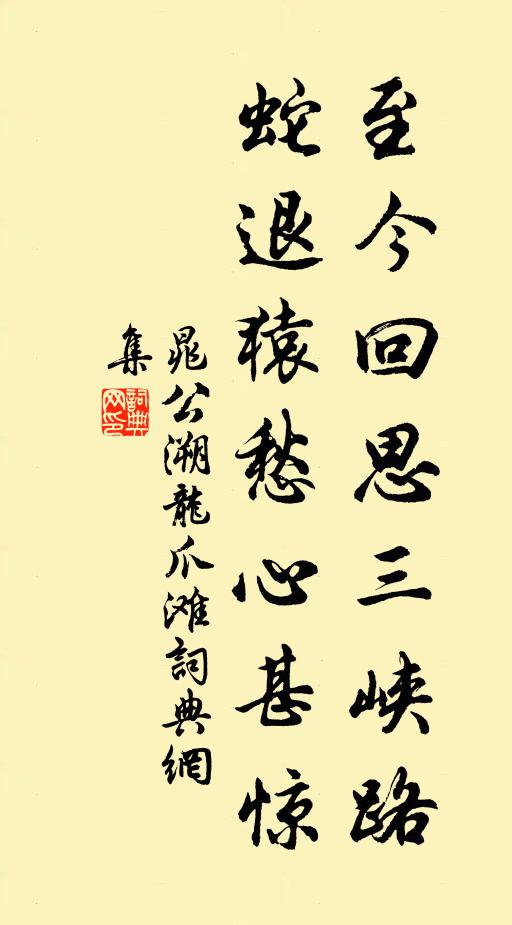 至今回思三峡路
蛇退猿愁心甚惊
晁公溯龍爪滩詞典網
集
詞典
网印